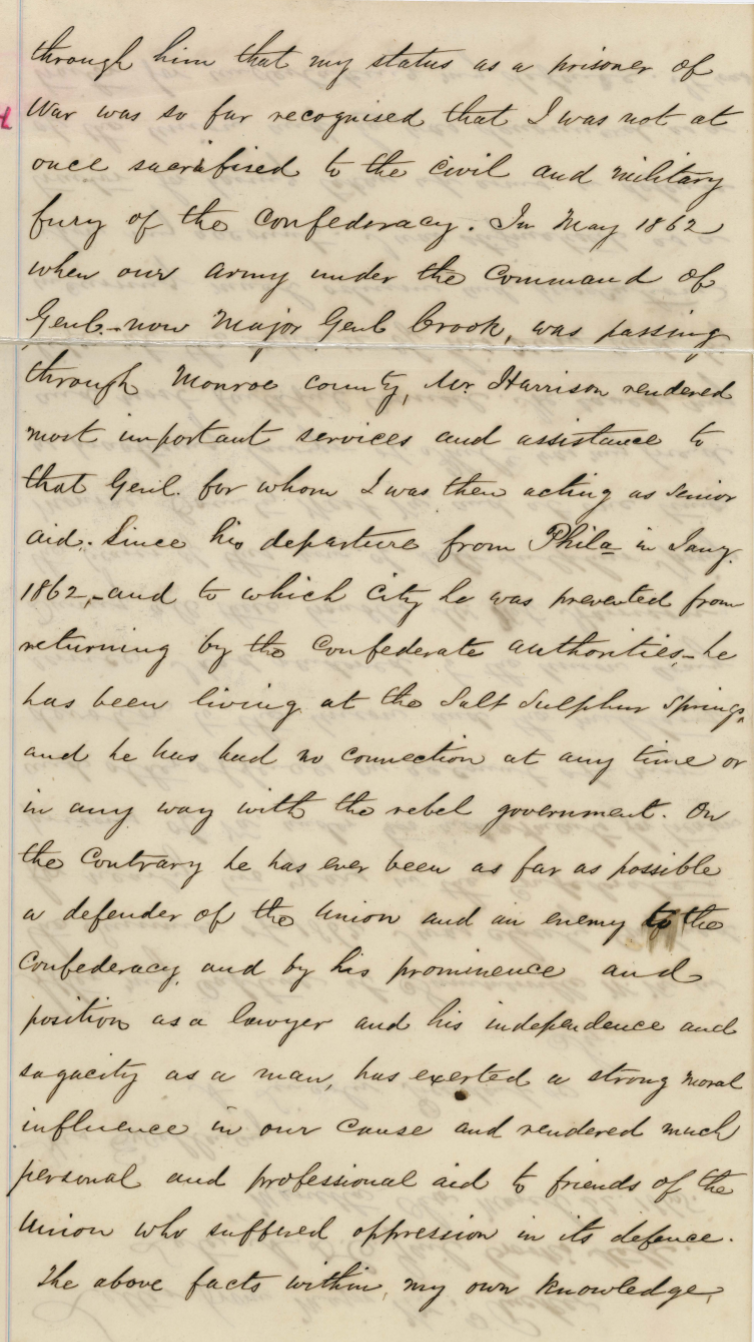 through him that my status as a prisoner of
War was so far recognised that I was not at
once sacrifised to the civil and military
fury of the Confederacy. In May 1862
when our army under the Command of
Genl.-now Major Genl Crook, was passing
through Monroe county, Mr. Harrison rendered
most important services and assistance to
that Genl. for whom I was then acting as Senior
aid. Since his departure from Phila in Jany.
1862,-and to which City he was prevented from
returning by the Confederate authorities-he
has been living at the Salt Sulphur Springs,
and he has had no connection at any time or
in any way with the rebel government. On
the Contrary he has ever been as far as possible
a defender of the Union and an enemy to the
Confederacy, and by his prominence and
position as a lawyer and his independence and
sagacity as a man, has exerted a strong moral
influence in our Cause and rendered much
personal and professional aid to friends of the
Union who suffered oppression in its defence.
The above facts within my own knowledge,